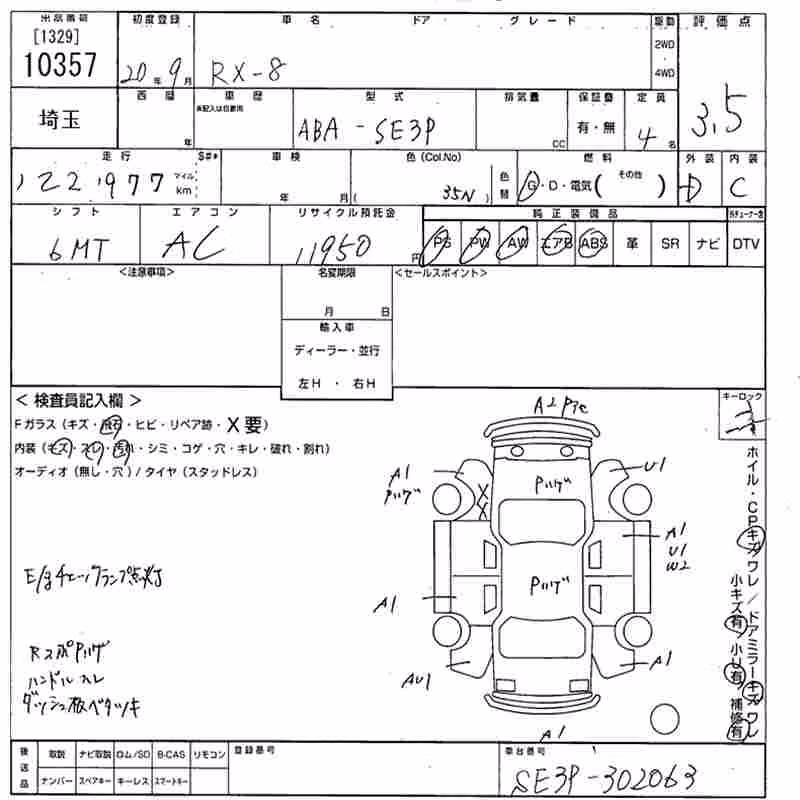 出品番号 初度登録 車名 ドア グレード 駆動 評価点
[1329]
10357 20年 9月 RX-8 2WD 4WD 3.5
埼玉 西暦 車歴 型式 排気量 保証書 定員
未記入は自家用
年 ABA-SE3P CC 有・無 4名
走行 S#* 車検 色(Col.No) 燃料 外装 内装
122,977 マイル km 年 月 ( 35N ) 色替 G・D・電気( その他 ) D C
シフト エアコン リサイクル預託金 純正装備品
6MT AC 11950円 PS PW AW エアB ABS 革 SR ナビ DTV
<注意事項> 名変期限 <セールスポイント>
月 日
輸入車
ディーラー・並行
左H ・ 右H
< 検査員記入欄 > キーロック
Fガラス (キズ・飛石・ヒビ・リペア跡・X要)
内装 (キズ・スレ・汚れ・シミ・コゲ・穴・キレ・破れ・割れ)
オーディオ (無し・穴) / タイヤ (スタッドレス)
E/gチェックランプ点灯
RスポPハゲ
ハンドルスレ
ダッシュ板ベタツキ
A1
Pハゲ
XX
Pハゲ
U1
A1
U1
W2
Pハゲ
A1
AU1
A1
A1
ホイル・CPキズワレ / ドアミラーキズワレ
小キズ有 小U有 補修有
後送品 取説 ナビ取説 ロム/SD B-CAS リモコン 登録番号 車台番号
ナンバー スペアキー キーレス スマートキー SE3P-302063